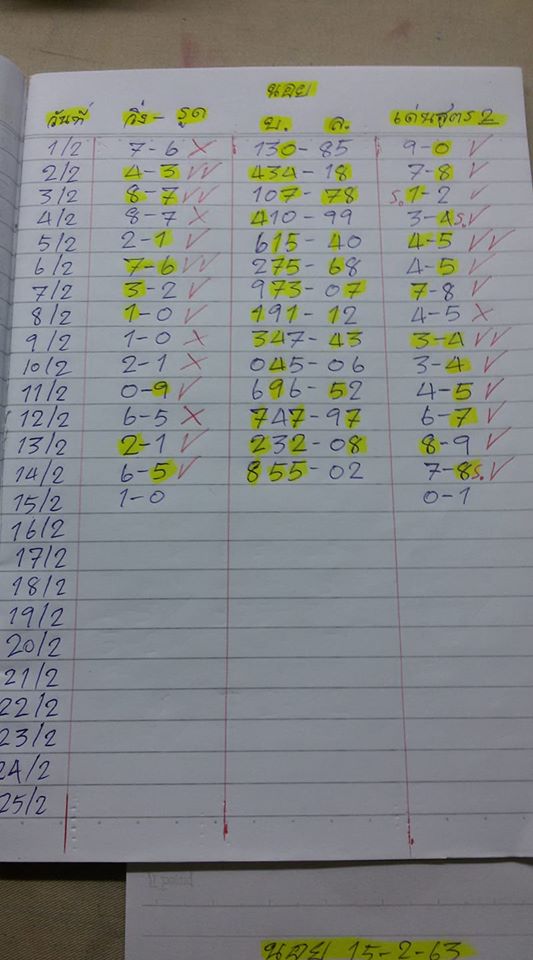 นอย
วันที่ วิ่ง - รูด บ. ล. เด่นสูตร 2
1/2 7-6 × 130-85 9-0 ✓
2/2 4-3 ✓✓ 434-18 7-8 ✓
3/2 8-7 ✓✓ 107-78 ร. 1-2 ✓
4/2 8-7 × 410-99 3-4 ร. ✓
5/2 2-1 ✓ 615-40 4-5 ✓✓
6/2 7-6 ✓✓ 275-68 4-5 ✓
7/2 3-2 ✓ 973-07 7-8 ✓
8/2 1-0 ✓ 191-12 4-5 ×
9/2 1-0 × 347-43 3-4 ✓✓
10/2 2-1 × 045-06 3-4 ✓
11/2 0-9 ✓ 696-52 4-5 ✓
12/2 6-5 × 747-97 6-7 ✓
13/2 2-1 ✓ 232-08 8-9 ✓
14/2 6-5 ✓ 855-02 7-8 ร. ✓
15/2 1-0 0-1
16/2
17/2
18/2
19/2
20/2
21/2
22/2
23/2
24/2
25/2
นอย 15-2-63